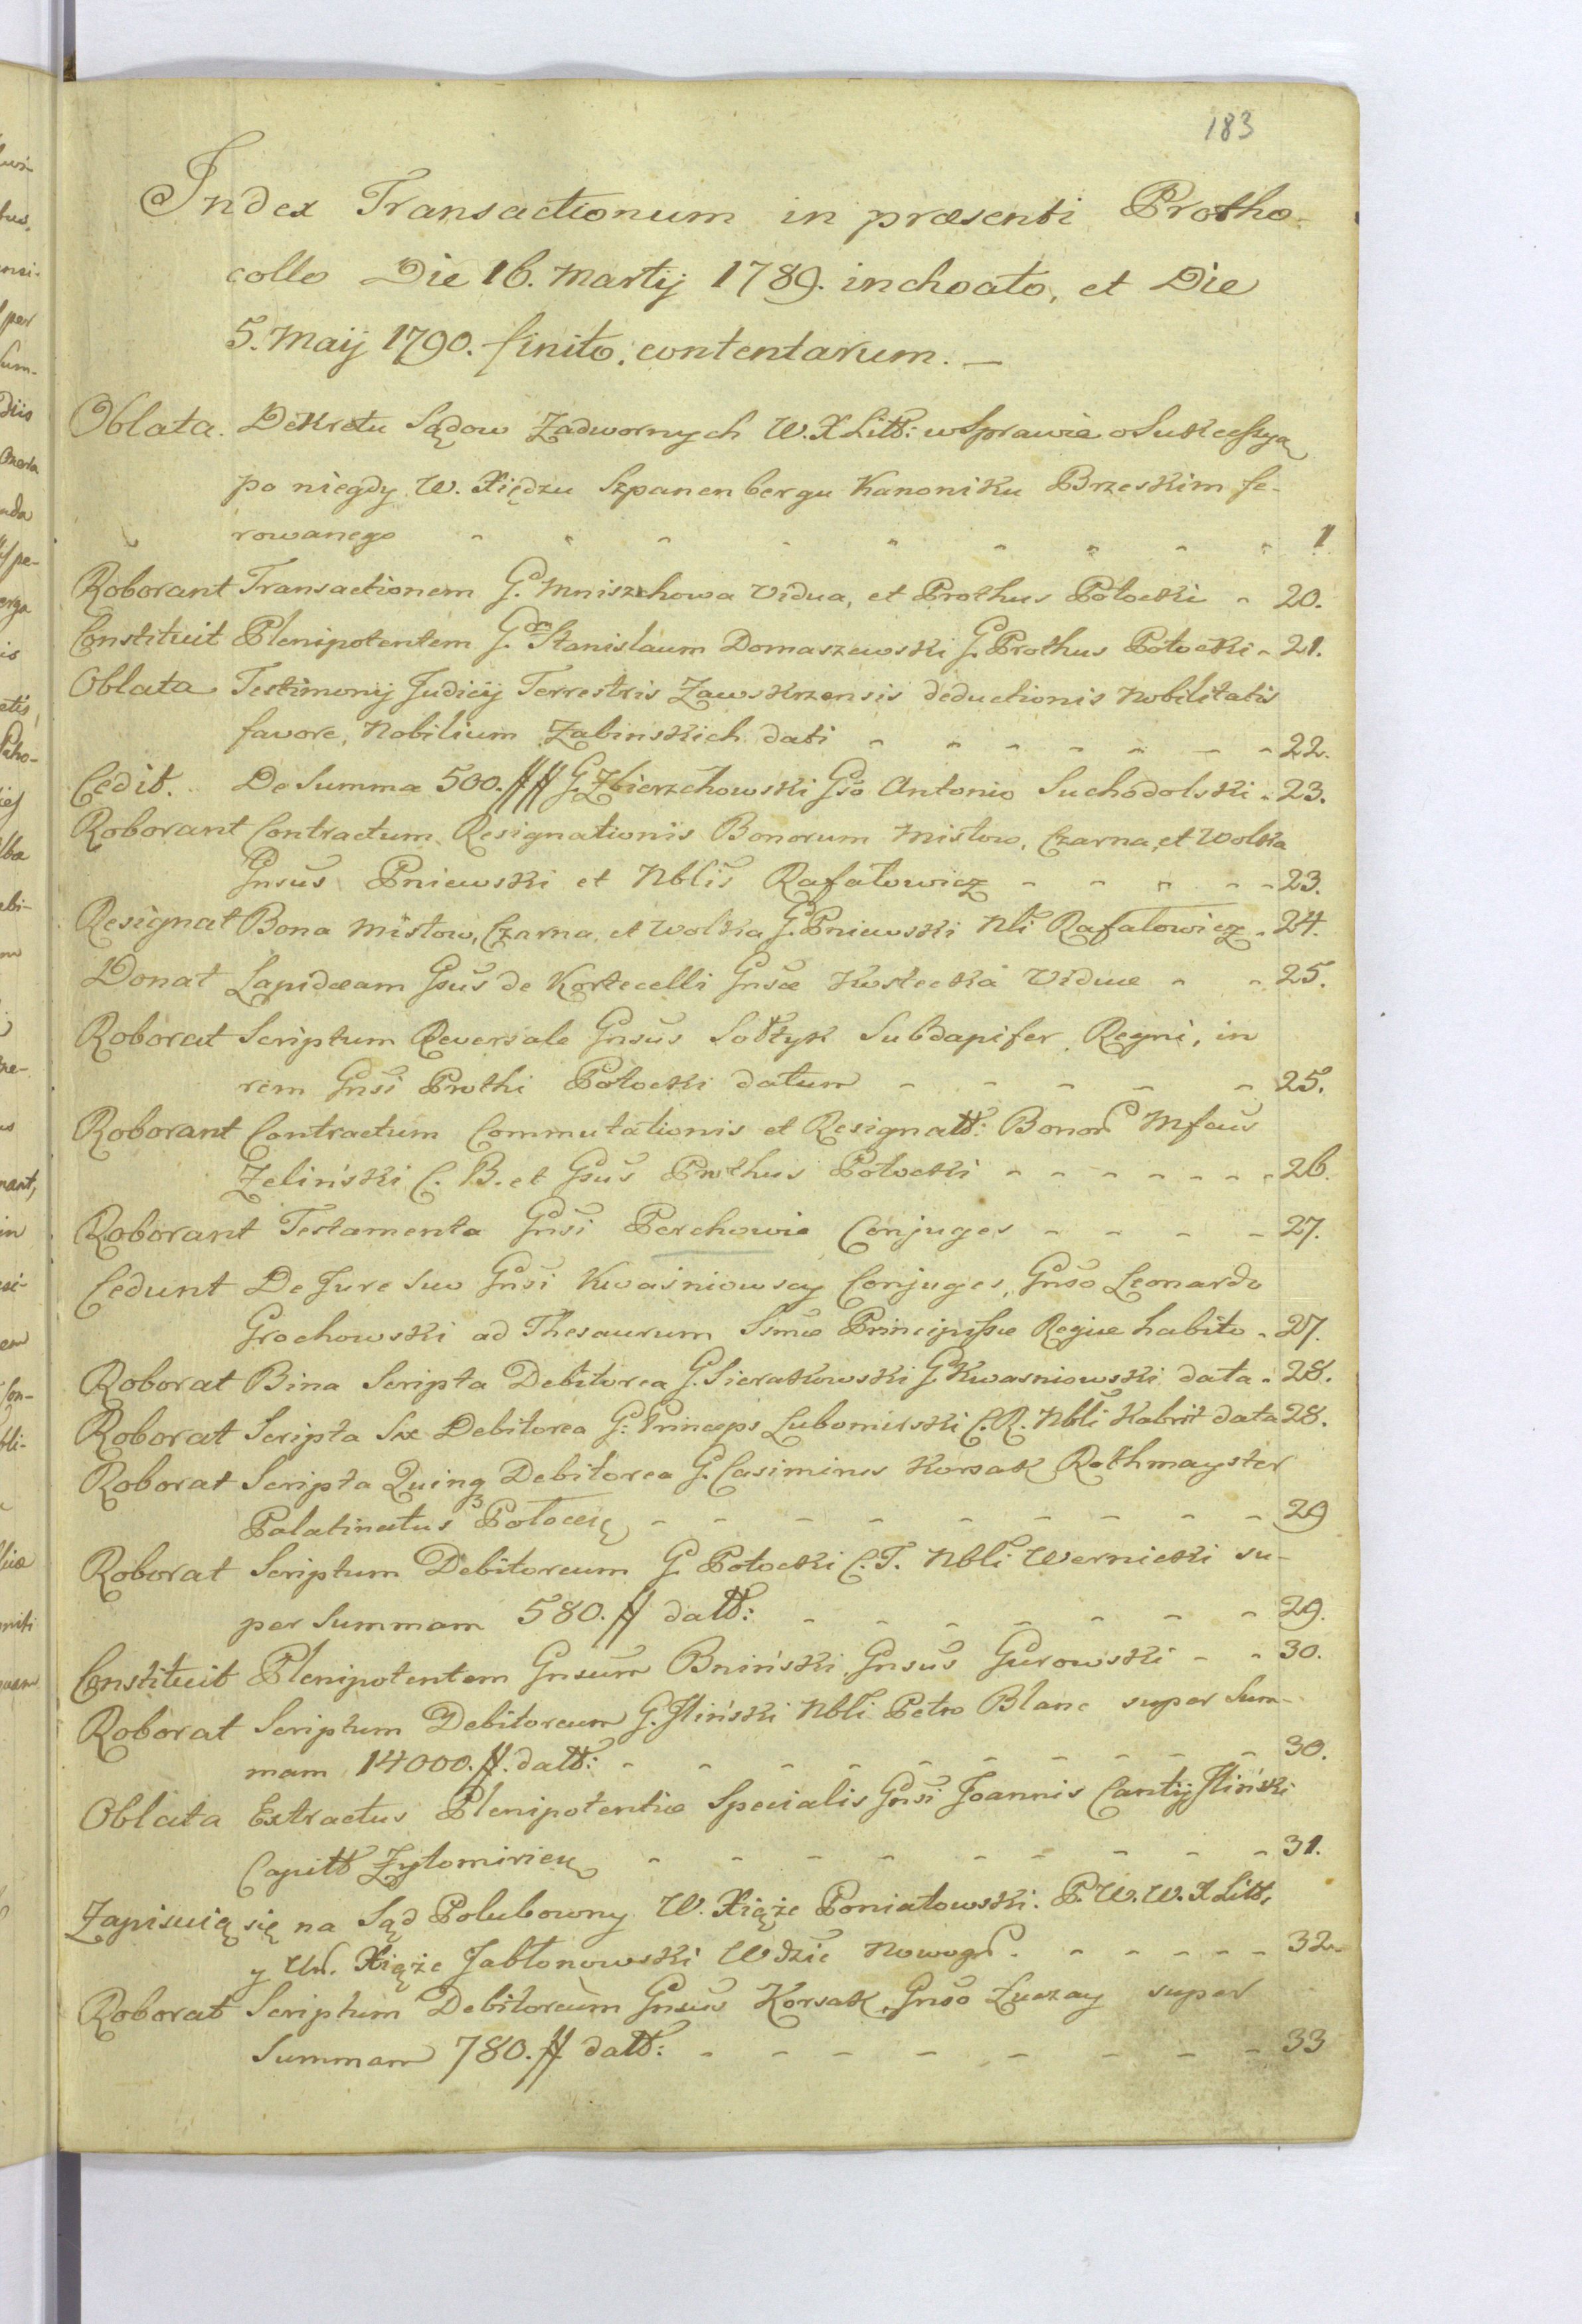 183
Index Transactionum in præsenti Protho-
collo Die 16. Martij 1789. inchoato, et Die
5. Maij 1790. finito, contentarum. —
Oblata. Dekretu Sądow Zadwornych W. X Litt: w Sprawie o Sukcessyą
po niegdy W. Xiędzu Szpanenbergu Kanoniku Brzeskim fe-
rowanego - - - - - - - - - 1
Roborant Transactionem G. Mniszchowa Vidua, et Prothus Potocki - 20.
Constituit Plenipotentem G. Stanislaum Domaszewski G. Prothus Potocki - 21.
Oblata Testimonij Judicij Terrestris Zawskrzensis deductionis Nobilitatis
favore, Nobilium Zabinskich dati - - - - - - - 22.
Cedit. De Summa 500. ff G. Zbierzchowski Gso Antonio Suchodolski - 23.
Roborant Contractum Resignationis Bonorum Mistow, Czarna, et Wolka
Gnsus Pniewski et Nblis Rafałowicz - - - - - 23.
Resignat Bona Mistow, Czarna, et Wolka G. Pniewski Nli Rafałowicz - 24.
Donat Lapideam Gsus de Kortecelli Gnsæ Kostecka Viduæ - - 25.
Roborat Scriptum Reversale Gnsus Sołtyk Subdapifer Regni, in
rem Gnsi Prothi Potocki datum - - - - - 25.
Roborant Contractum Commutationis et Resignatt: Bonor Mfcus
Zeliński C. B. et Gsus Prothus Potocki - - - - - - - 26.
Roborant Testamenta Gnsi Perchowie Conjuges - - - - 27.
Cedunt De Jure suo Gnsi Kwaśniowscy Conjuges, Gnso Leonardo
Grochowski ad Thesaurum Ssmæ Principissæ Regiæ habito - 27.
Roborat Bina Scripta Debitorea G. Sierakowski G. Kwasniowski data - 28.
Roborat Scripta Sex Debitorea G. Princeps Lubomirski C. R. Nbli Kabrit data 28.
Roborat Scripta Quinq Debitorea G. Casimirus Korsak Rothmayster
Palatinatus Połocen - - - - - - - - - 29
Roborat Scriptum Debitoreum G. Potocki C. T. Nbli Wernicki su-
per Summam 580. ff datt: - - - - - - - 29.
Constituit Plenipotentem Gnsum Bniński, Gnsus Gurowski - - 30.
Roborat Scriptum Debitoreum G. Iliński Nbli Petro Blanc super Sum-
mam 14000. ff. datt: - - - - - - - - - - 30.
Oblata Extractus Plenipotentiæ Specialis Gnsi Joannis Cantij Iliński
Capitt Zytomirien - - - - - - - - - 31.
Zapisuią się na Sąd Polubowny W. Xiąże Poniatowski. P. W. W. X Litt,
y Ur. Xiąże Jabłonowski Wdzic Nowogr. - - - - - 32.
Roborat Scriptum Debitoreum Gnsus Korsak, Gnso Łuczay super
Summam 780. ff. datt: - - - - - - - - 33